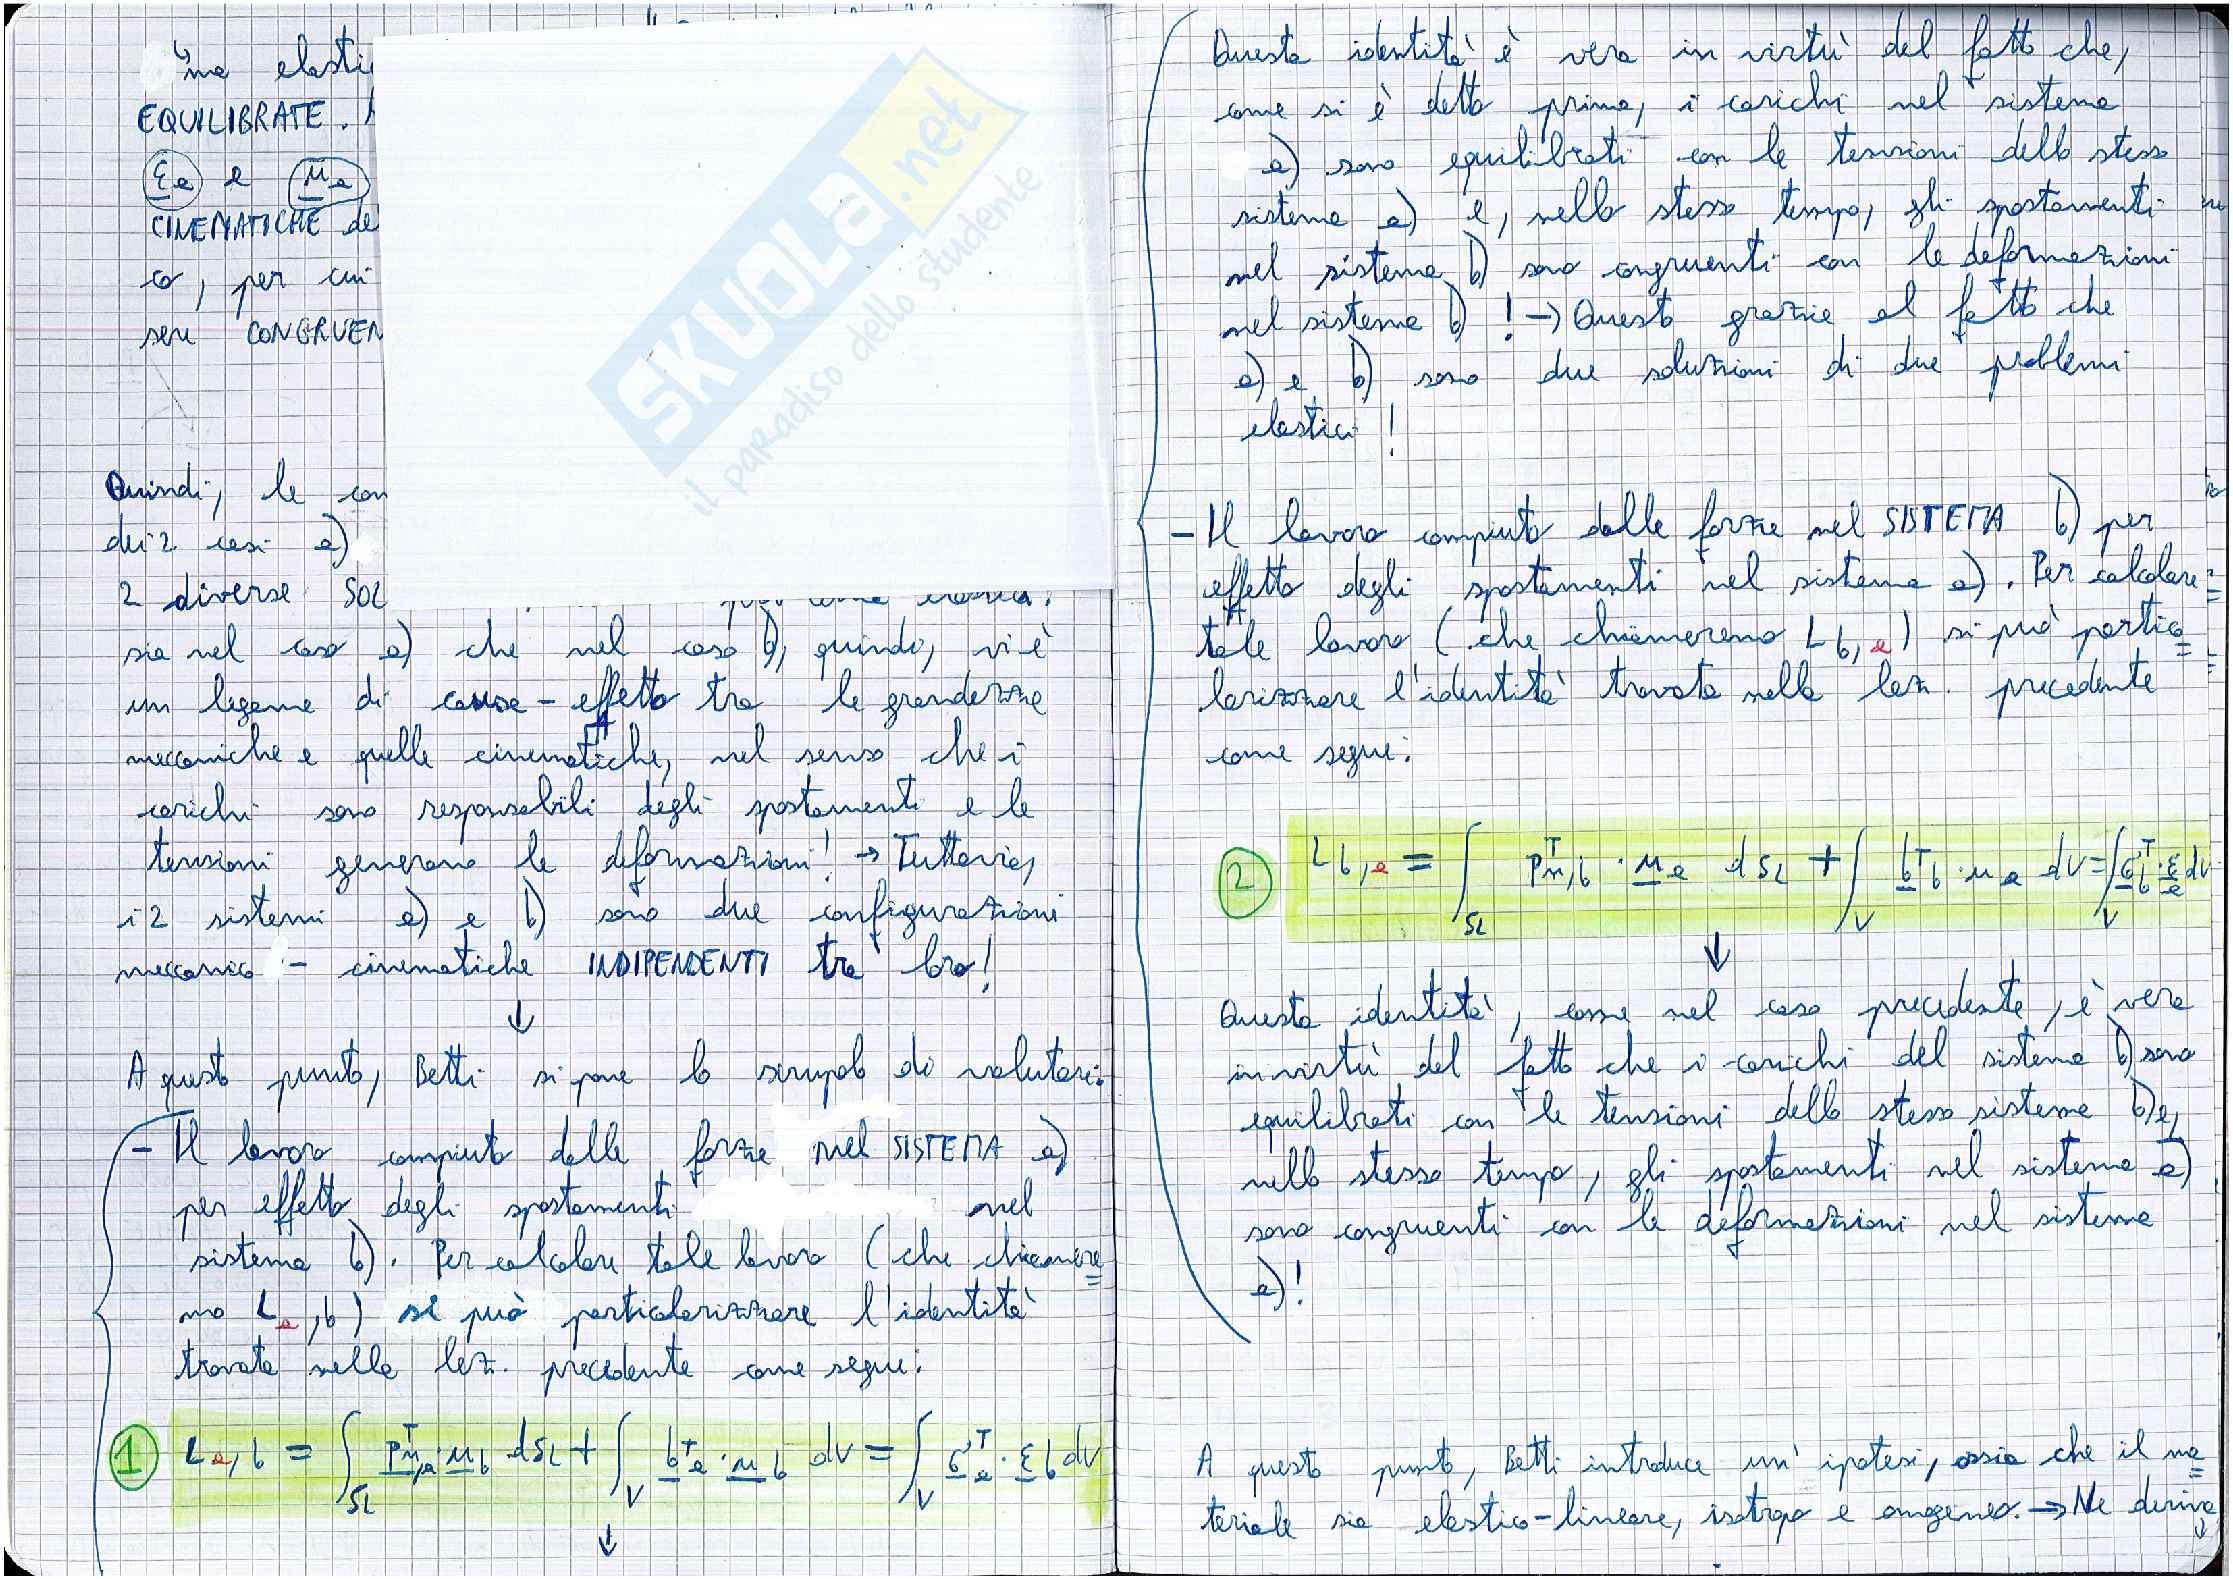 ma elastic
EQUILIBRATE.
εa e ua
CINEMATICHE de
co, per cui
sere CONGRUEN
Quindi, le con
dei 2 casi a)
2 diverse SOL
sia nel caso a) che nel caso b), quindi, vi è
un legame di causa-effetto tra le grandezze
meccaniche e quelle cinematiche, nel senso che i
carichi sono responsabili degli spostamenti e le
tensioni generano le deformazioni! → Tuttavia,
i 2 sistemi a) e b) sono due configurazioni
meccanico - cinematiche INDIPENDENTI tra loro!
↓
A questo punto, Betti si pone lo scrupolo di valutare:
- Il lavoro compiuto dalle forze nel SISTEMA a)
per effetto degli spostamenti nel
sistema b). Per calcolare tale lavoro (che chiamere=
mo La,b) si può particolarizzare l'identità
trovata nella lez. precedente come segue:
1 La,b = ∫SL pᵀn,a · ub dSL + ∫V bᵀa · ub dV = ∫V σᵀa · εb dV
↓
Questa identità è vera in virtù del fatto che,
come si è detto prima, i carichi nel sistema
a) sono equilibrati con le tensioni dello stesso
sistema a) e, nello stesso tempo, gli spostamenti
nel sistema b) sono congruenti con le deformazioni
nel sistema b)! → Questo grazie al fatto che
a) e b) sono due soluzioni di due problemi
elastici!
- Il lavoro compiuto dalle forze nel SISTEMA b) per
effetto degli spostamenti nel sistema a). Per calcolare
tale lavoro (che chiameremo Lb,a) si può partico=
larizzare l'identità trovata nella lez. precedente
come segue:
2 Lb,a = ∫SL pᵀn,b · ua dSL + ∫V bᵀb · ua dV = ∫V σᵀb · εa dV
↓
Questa identità, come nel caso precedente, è vera
in virtù del fatto che i carichi del sistema b) sono
equilibrati con le tensioni dello stesso sistema b) e,
nello stesso tempo, gli spostamenti nel sistema a)
sono congruenti con le deformazioni nel sistema
a)!
A questo punto, Betti introduce un'ipotesi, ossia che il ma=
teriale sia elastico-lineare, isotropo e omogeneo. → Ne deriva
↓
SKUOLA.net
il paradiso dello studente